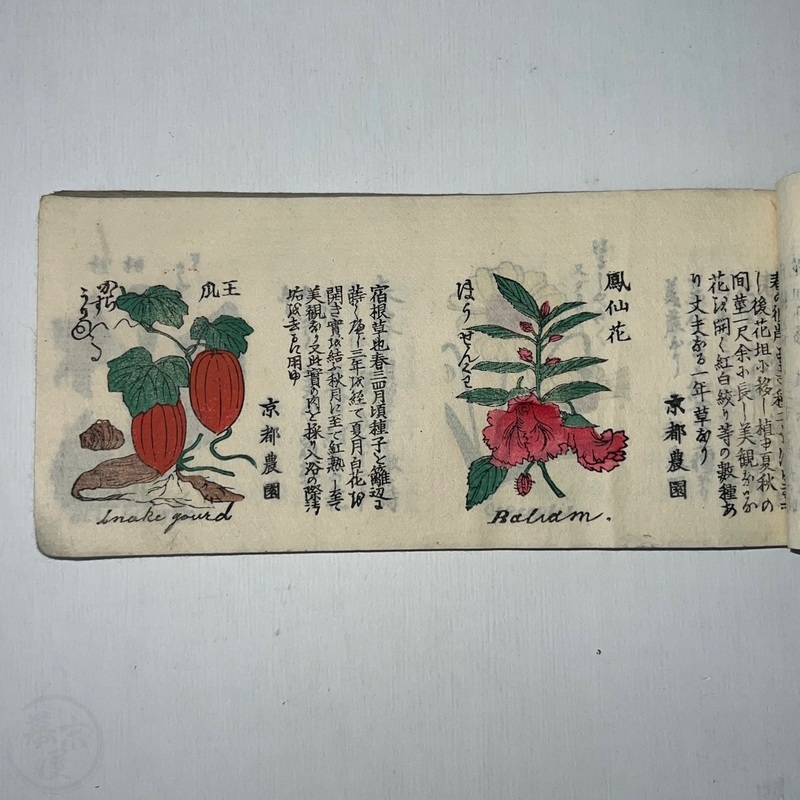 間莖一尺余小長し美観なるな
花を開く紅白絞り等の数種あ
り丈夫なる一年草なり
京都農園
鳳仙花
ほうせんくわ
Balsam.
宿根草也春三四月頃種子を籬辺に
蒔く第二三年を経て夏月白花を
開き實を結ぶ秋月に至て紅熟し至て
美観なり又此實の肉を採り入浴の際汚
垢を去るに用ゆ
京都農園
王瓜
からすうり
Snake gourd